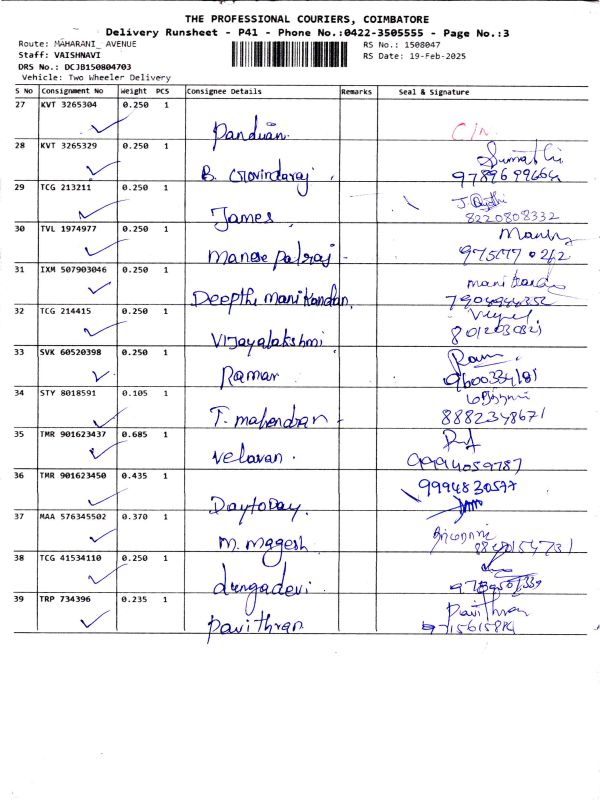 THE PROFESSIONAL COURIERS, COIMBATORE
Delivery Runsheet - P41 - Phone No.:0422-3505555 - Page No.:3
Route: MAHARANI_ AVENUE RS No.: 1508047
Staff: VAISHNAVI RS Date: 19-Feb-2025
DRS No.: DCJB150804703
Vehicle: Two Wheeler Delivery
S No Consignment No Weight PCS Consignee Details Remarks Seal & Signature
27 KVT 3265304 0.250 1
Pandian.
28 KVT 3265329 0.250 1
B. Govindaraj.
29 TCG 213211 0.250 1
James. 8220808332
30 TVL 1974977 0.250 1
31 IXM 507903046 0.250 1
Deepthi Manikandan.
32 TCG 214415 0.250 1
Vijayalakshmi.
33 SVK 60520398 0.250 1
Ramar
34 STY 8018591 0.105 1
T. mahendran 8882348671
35 TMR 901623437 0.685 1
velavan. 9994059787
36 TMR 901623450 0.435 1 9994830577
Daytoday.
37 MAA 576345502 0.370 1
M. Magesh
38 TCG 41534110 0.250 1
durgadevi
39 TRP 734396 0.235 1 Pavithran
pavithran